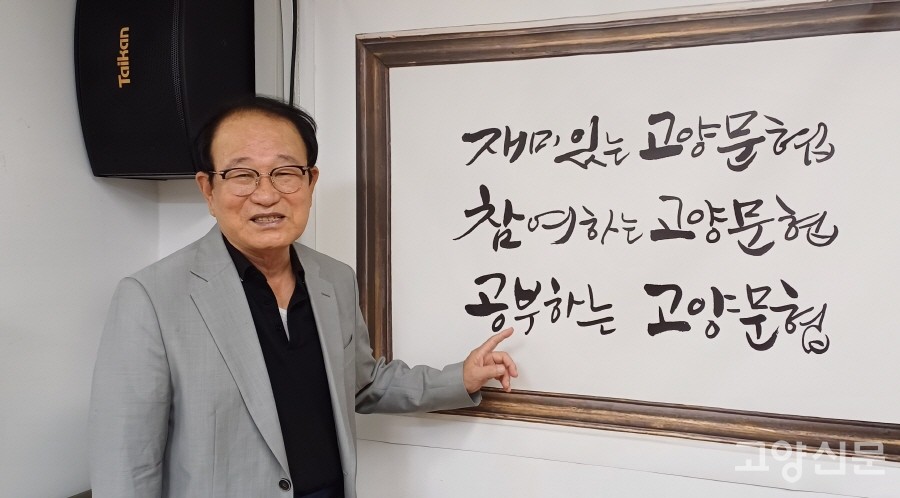 Taikan
재미있는 고양문협
참여하는 고양문협
공부하는 고양문협
고양신문